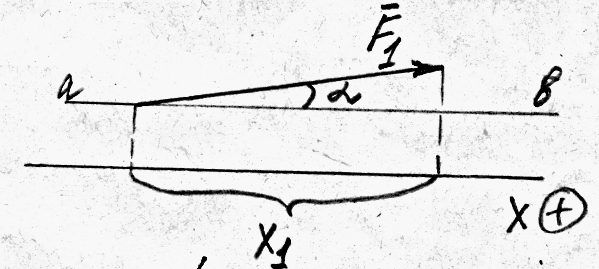 F̄₁
a α в
X ⊕
X₁